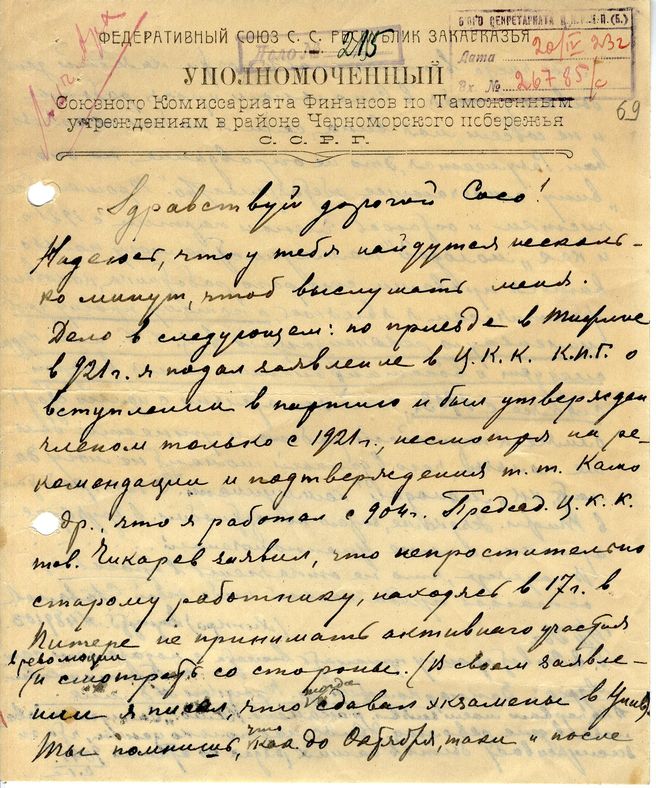 БЮРО СЕКРЕТАРИАТА Ц.К. Р.К.П.(Б.)
ФЕДЕРАТИВНЫЙ СОЮЗ С. С. РЕСПУБЛИК ЗАКАВКАЗЬЯ
Дело № 215
Дата 20/IV 23г
УПОЛНОМОЧЕННЫЙ
Вх. № 26785/с
Союзного Комиссариата Финансов по Таможенным
учреждениям в районе Черноморского побережья
69
С. С. Р. Г.
Здравствуй дорогой Сосо!
Надеюсь, что у тебя найдутся несколь-
ко минут, чтоб выслушать меня.
Дело в следующем: по приезде в Тифлис
в 921 г. я подал заявление в Ц.К.К. К.П.Г. о
вступлении в партию и был утвержден
членом только с 1921 г., несмотря на ре-
комендации и подтверждения т.т. Камо
др., что я работал с 904 г. Председ. Ц.К.К.
тов. Чикарев заявил, что непростительно
старому работнику, находясь в 17 г. в
Питере не принимать активного участия
в революции
и смотреть со стороны. (В своем заявле-
нии я писал, что тогда сдавал экзамены в Унив.
Ты помнишь, что как до Октября, так и после